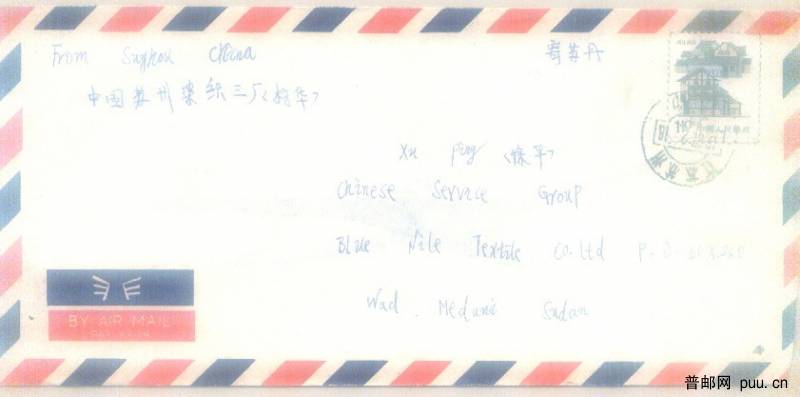 From Suzhou China
寄苏丹
中国苏州染织三厂
Xu Ping
Chinese Service Group
Blue Nile Textile Co. Ltd P. O.
Wad . Medani Sudan
BY AIR MAIL
PAR AVION
普邮网 puu.cn